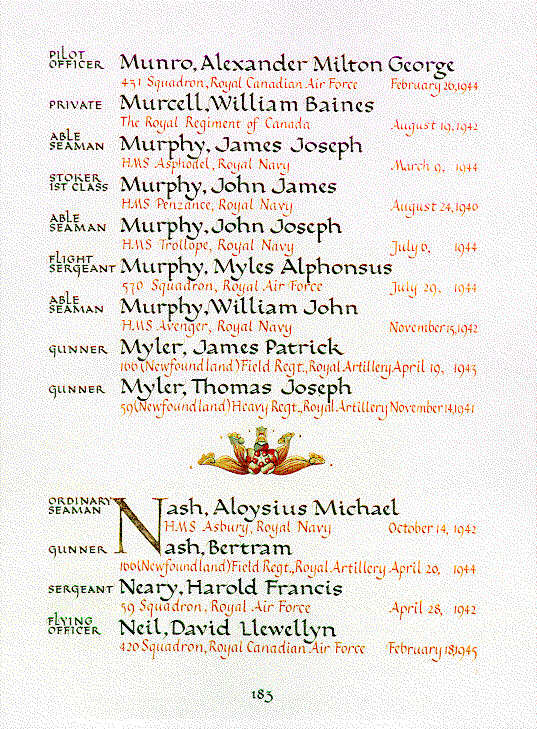 PILOT OFFICER Munro, Alexander Milton George
431 Squadron, Royal Canadian Air Force February 26, 1944
PRIVATE Murcell, William Baines
The Royal Regiment of Canada August 19, 1942
ABLE SEAMAN Murphy, James Joseph
H.M.S Asphodel, Royal Navy March 9, 1944
STOKER 1ST CLASS Murphy, John James
H.M.S Penzance, Royal Navy August 24, 1940
ABLE SEAMAN Murphy, John Joseph
H.M.S Trollope, Royal Navy July 6, 1944
FLIGHT SERGEANT Murphy, Myles Alphonsus
570 Squadron, Royal Air Force July 29, 1944
ABLE SEAMAN Murphy, William John
H.M.S Avenger, Royal Navy November 15, 1942
GUNNER Myler, James Patrick
166 (Newfoundland) Field Regt., Royal Artillery April 19, 1943
GUNNER Myler, Thomas Joseph
59 (Newfoundland) Heavy Regt., Royal Artillery November 14, 1941
ORDINARY SEAMAN Nash, Aloysius Michael
H.M.S Asbury, Royal Navy October 14, 1942
GUNNER Nash, Bertram
166 (Newfoundland) Field Regt., Royal Artillery April 20, 1944
SERGEANT Neary, Harold Francis
59 Squadron, Royal Air Force April 28, 1942
FLYING OFFICER Neil, David Llewellyn
420 Squadron, Royal Canadian Air Force February 18, 1945
183